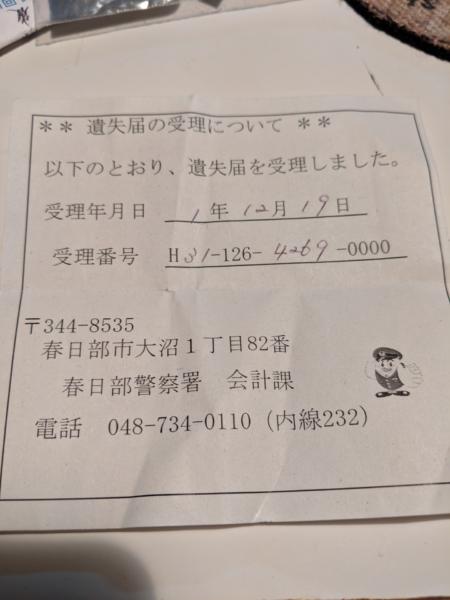 ** 遺失届の受理について **
以下のとおり、遺失届を受理しました。
受理年月日 1年12月19日
受理番号 H31-126-4269-0000
〒344-8535
春日部市大沼1丁目82番
春日部警察署 会計課
電話 048-734-0110（内線232）